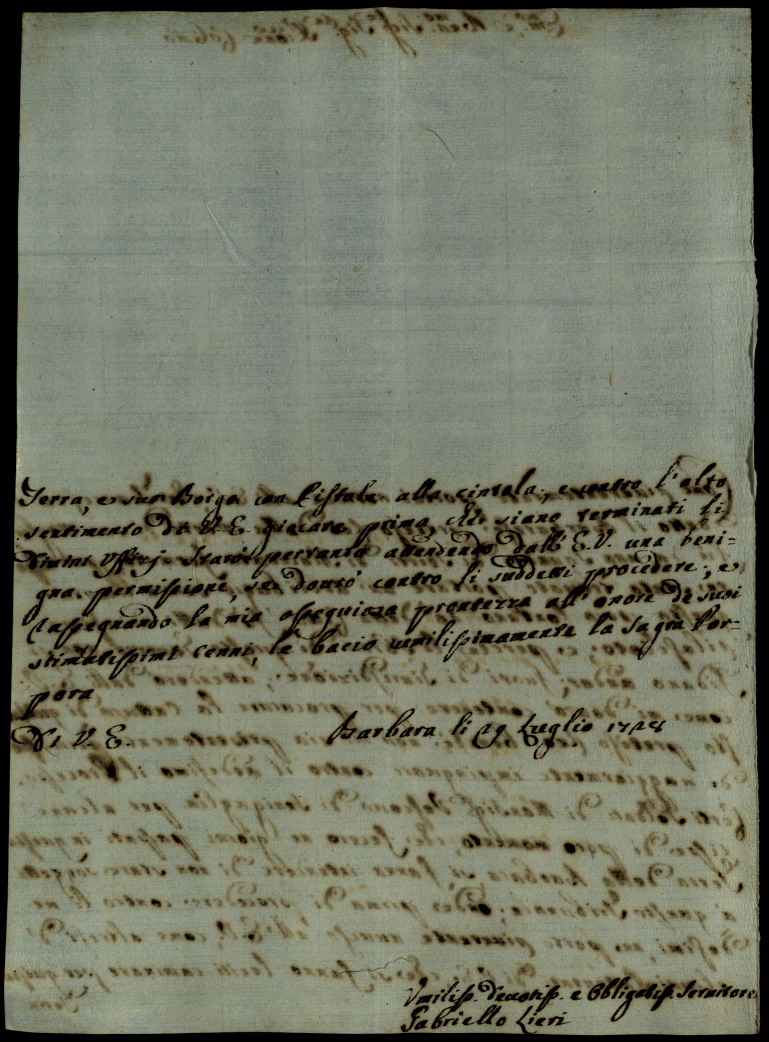 Terra, e suo Borgo con Pistola alla cintola, e contro l'alto
sentimento di V. E. giocare prima che siano terminati li
Divini Uffizj. Starò pertanto attendendo dall'E. V. una beni=
gna permissione, se dovrò contro li suddetti procedere, e
rassegnando la mia ossequiosa prontezza all'onore de suoi
stimatissimi cenni, le bacio umilissimamente la Sagra Por=
pora
Di V. E. Barbara li 29 Luglio 1728
Umiliss. Devotiss. e Obligatiss. Servitore
Gabriello Lieri